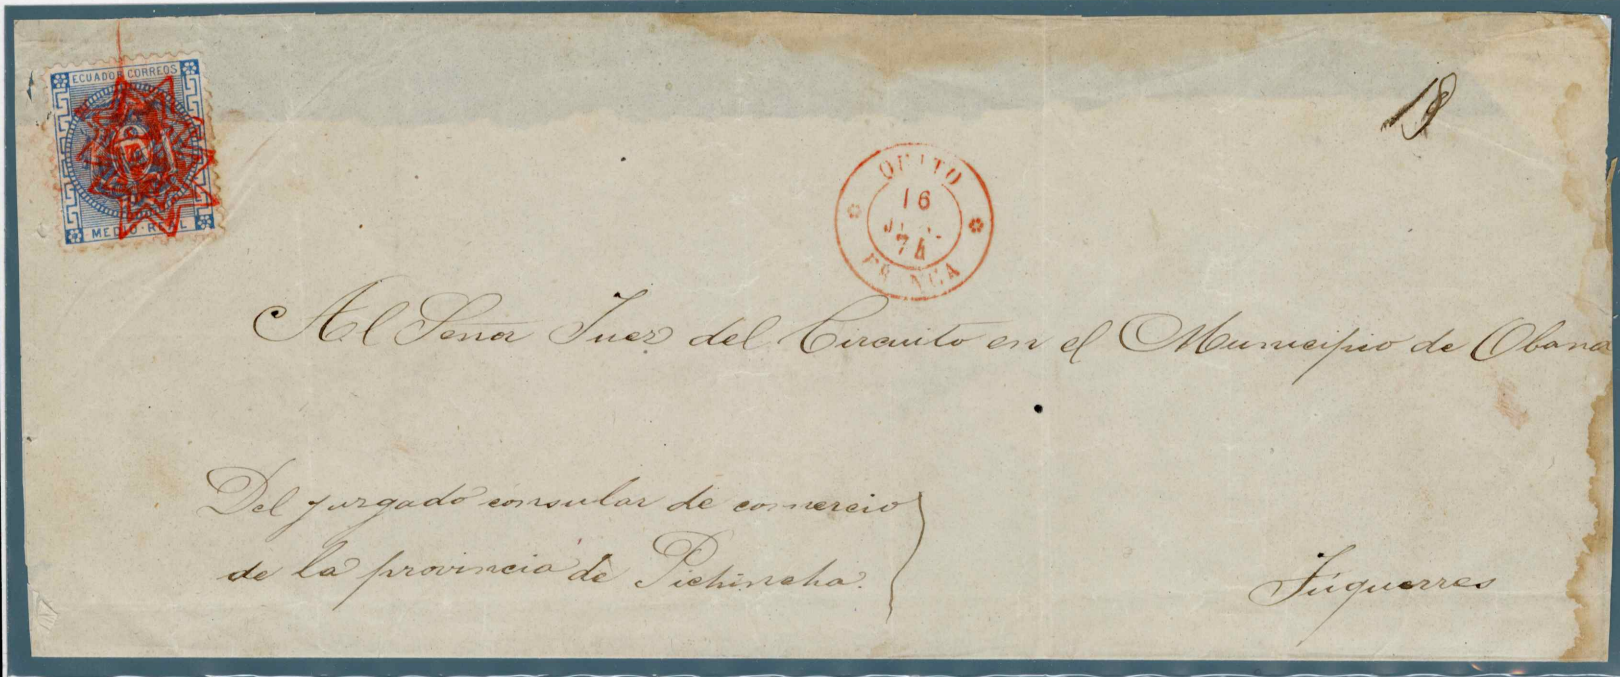 ECUADOR CORREOS
MEDIO REAL
18
QUITO
16
74
FRANCA
Al Señor Juez del Circuito en el Municipio de Oband
Del juzgado consular de comercio
de la provincia de Pichincha.
Túquerres